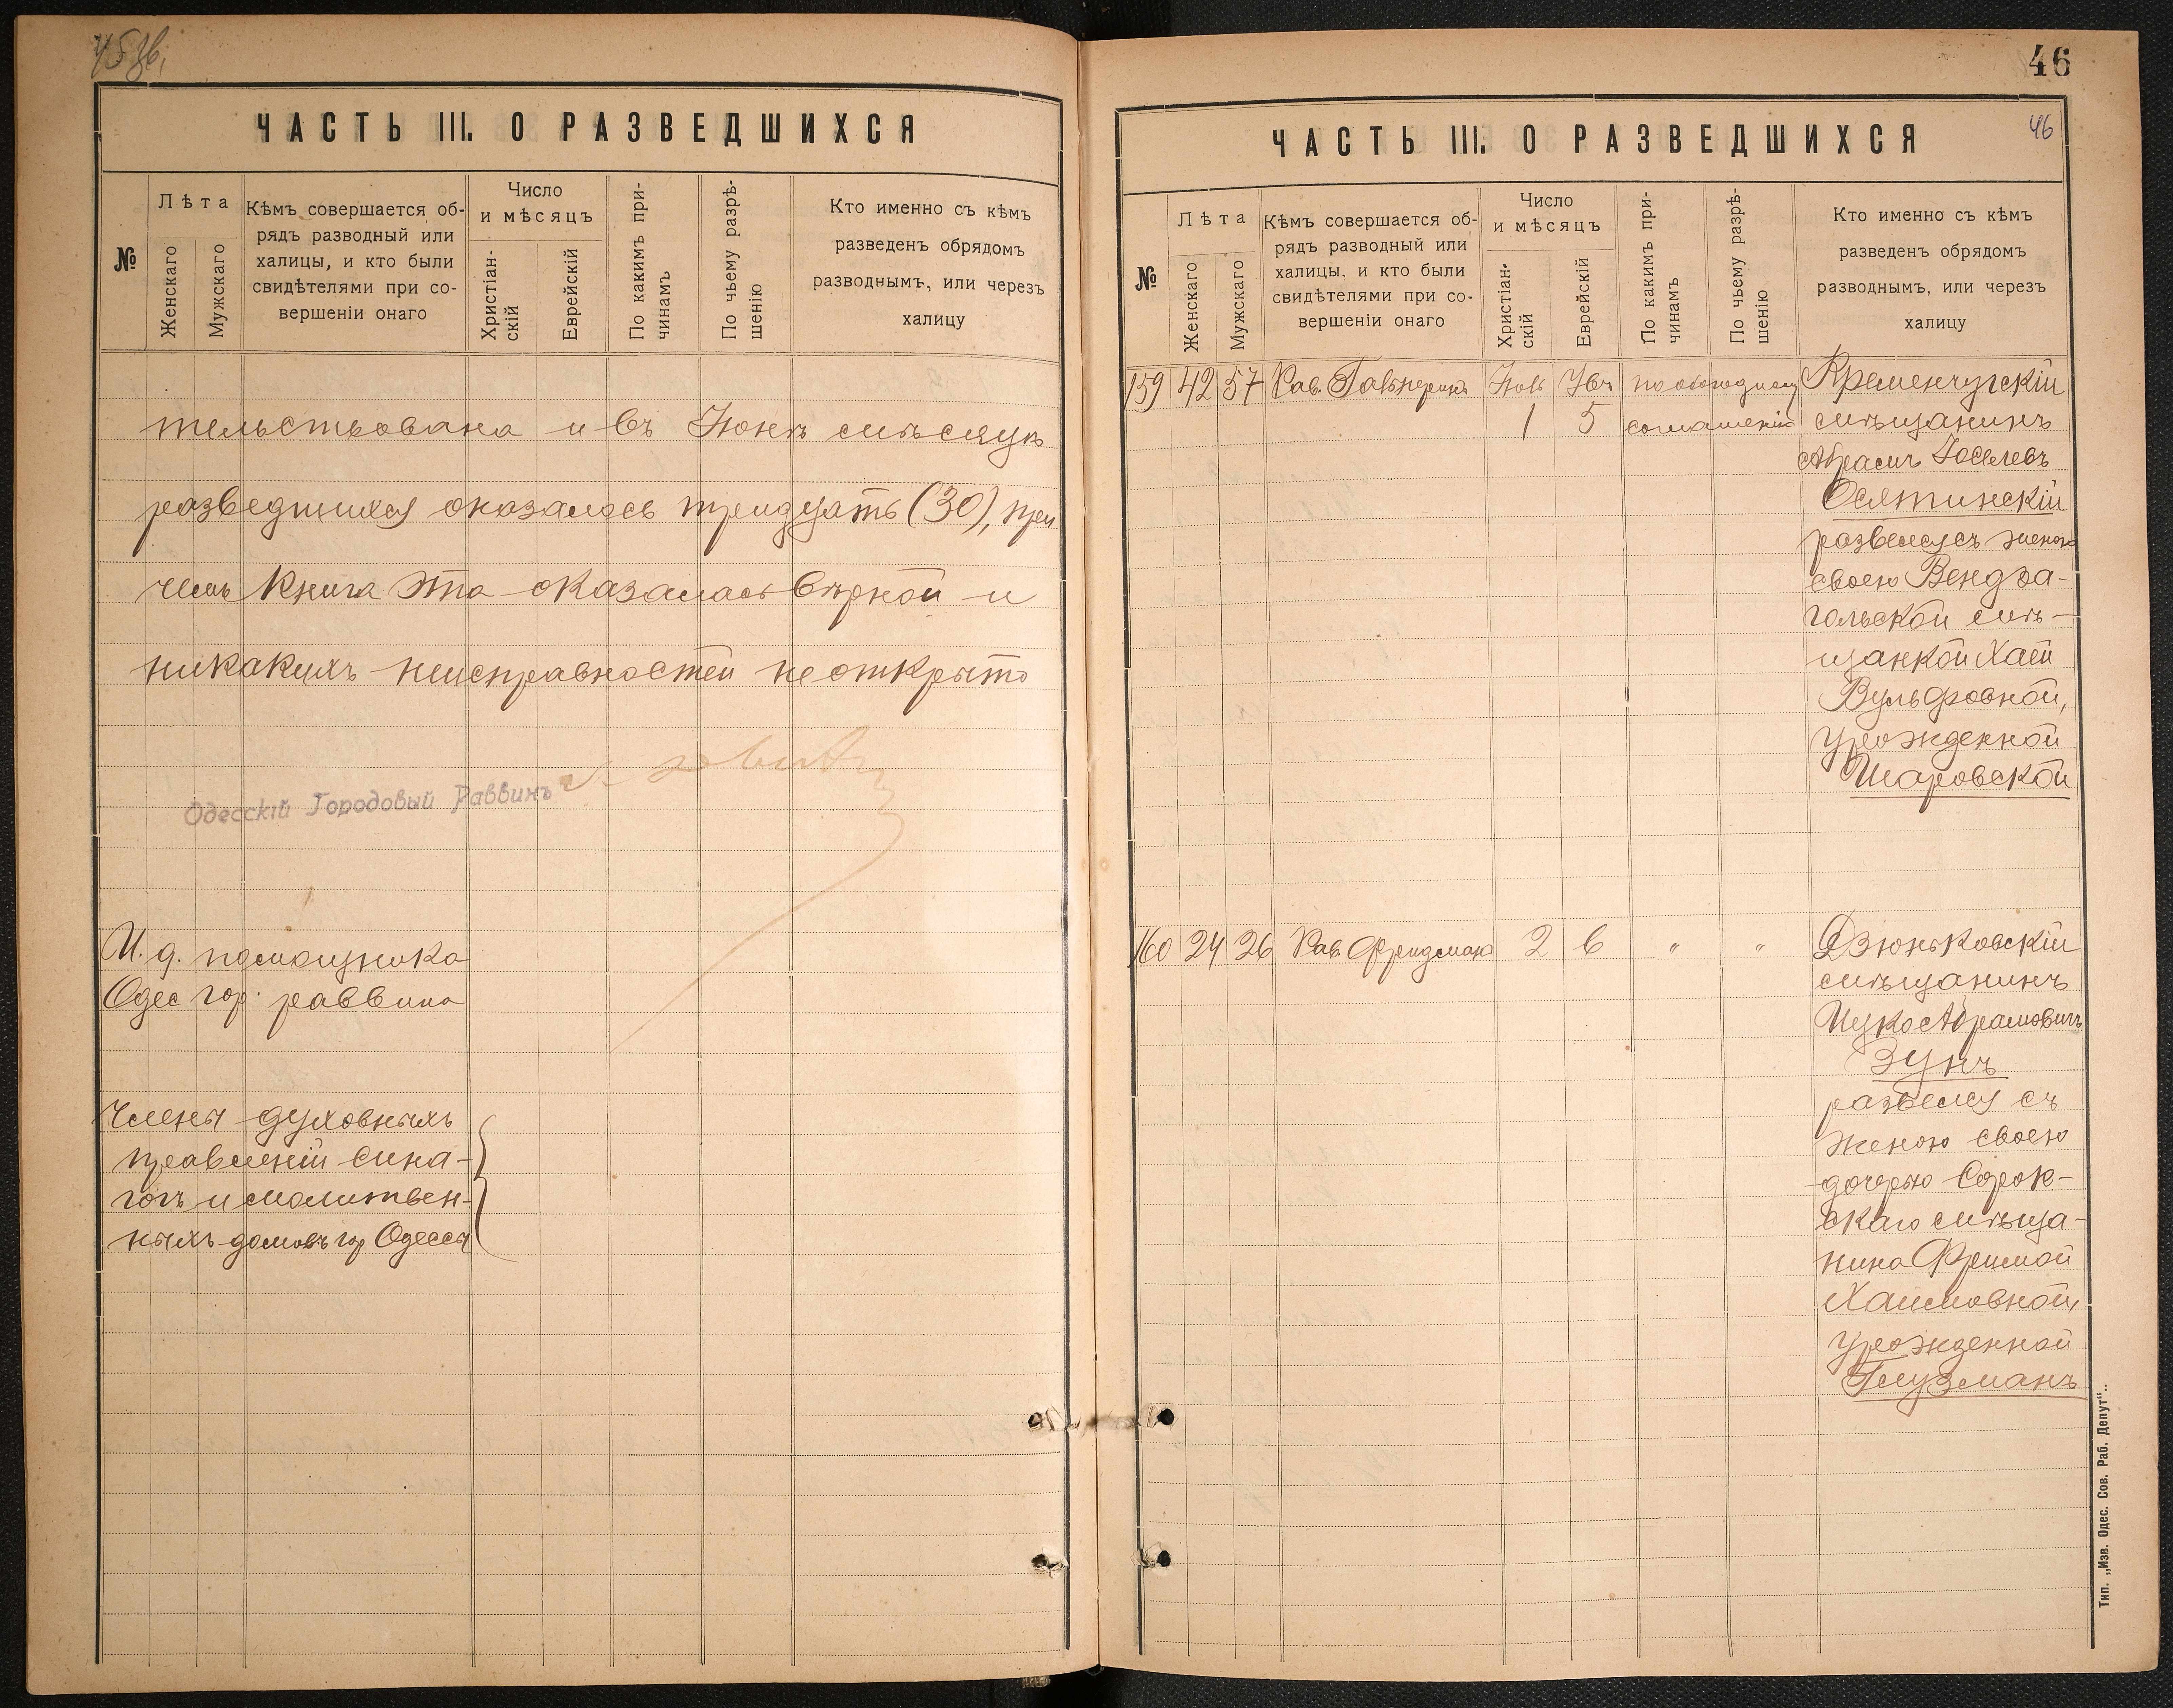 45 об.
ЧАСТЬ III. О РАЗВЕДШИХСЯ
№
Лѣта
Женскаго
Мужскаго
Кѣмъ совершается об-
рядъ разводный или
халицы, и кто были
свидѣтелями при со-
вершеніи онаго
Число
и мѣсяцъ
Христіан-
скій
Еврейскій
По какимъ при-
чинамъ
По чьему разрѣ-
шенію
Кто именно съ кѣмъ
разведенъ обрядомъ
разводнымъ, или черезъ
халицу
тельствована и въ Іюнѣ мѣсяцѣ
разведшихся оказалось тридцать (30), при
чемъ книга эта оказалась вѣрной и
никакихъ неисправностей не открыто
Одесскій Городовый Раввинъ
И. д. помощника
Одес гор. раввина
Члены духовныхъ
правленій сина-
гогъ и молитвен-
ныхъ домовъ гор Одессы
46
ЧАСТЬ III. О РАЗВЕДШИХСЯ
46
№
Лѣта
Женскаго
Мужскаго
Кѣмъ совершается об-
рядъ разводный или
халицы, и кто были
свидѣтелями при со-
вершеніи онаго
Число
и мѣсяцъ
Христіан-
скій
Еврейскій
По какимъ при-
чинамъ
По чьему разрѣ-
шенію
Кто именно съ кѣмъ
разведенъ обрядомъ
разводнымъ, или черезъ
халицу
159 42 57 Рав. Гальперинъ по обоюдному Кременчугскій
1 5 соглашенію мѣщанинъ
Абрамъ Іоселевъ
Осятинскій
развелся съ женою
своею Вендза-
гольской мѣ-
щанкой Хаей
Вульфовной,
урожденной
Шаровской
160 24 26 Рав. Фридманъ 2 6 " " Дзюньковскій
мѣщанинъ
Ицко Абрамовичъ
Зунъ
развелся съ
женою своею
дочерью Сорок-
скаго мѣща-
нина Фримой
Хаимовной,
урожденной
Глузманъ
Тип. „Изв. Одес. Сов. Раб. Депут“.